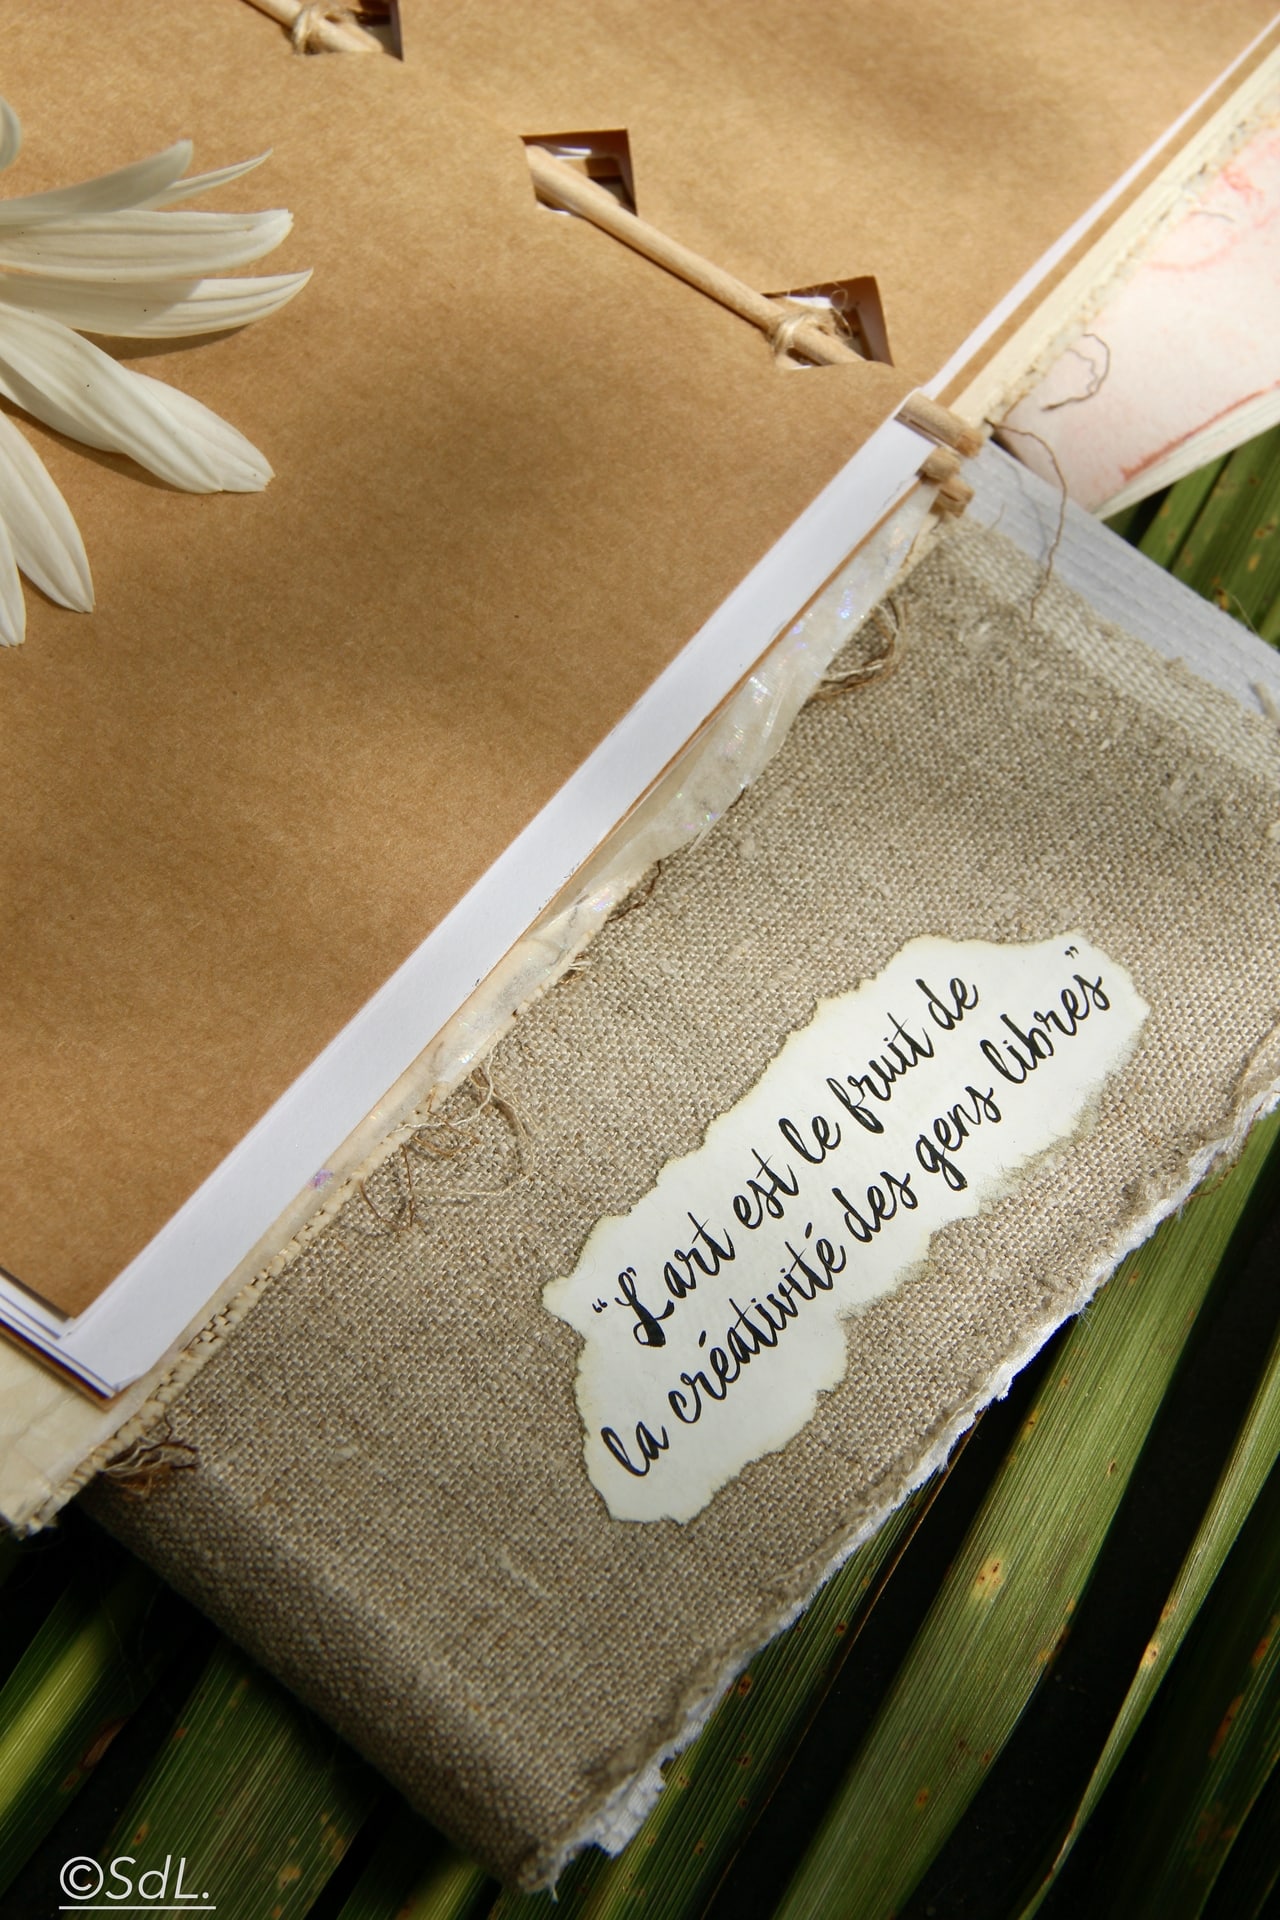 “L'art est le fruit de
la créativité des gens libres”
©SdL.